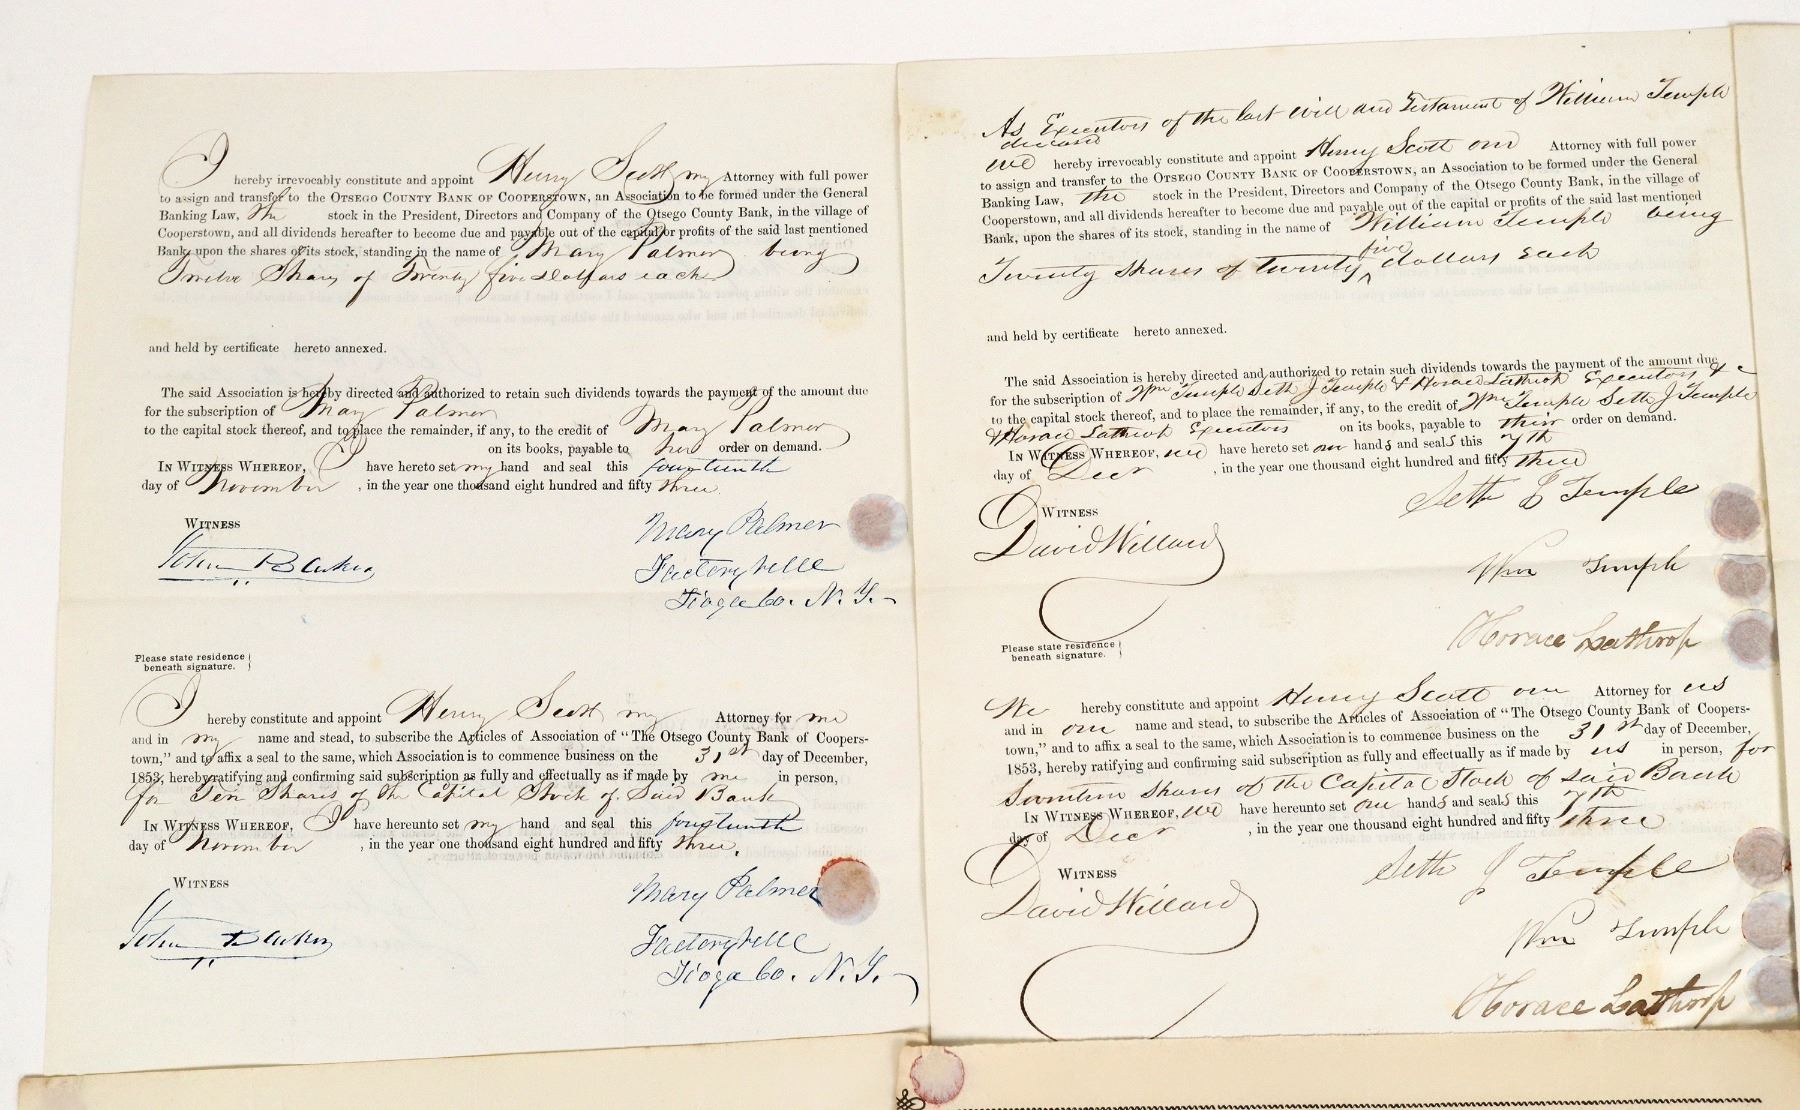 I hereby irrevocably constitute and appoint Henry Scott my Attorney with full power
to assign and transfer to the OTSEGO COUNTY BANK OF COOPERSTOWN, an Association to be formed under the General
Banking Law, the stock in the President, Directors and Company of the Otsego County Bank, in the village of
Cooperstown, and all dividends hereafter to become due and payable out of the capital or profits of the said last mentioned
Bank, upon the shares of its stock, standing in the name of Mary Palmer being
Twelve Shars of Twenty five Dollars each
and held by certificate hereto annexed.
The said Association is hereby directed and authorized to retain such dividends towards the payment of the amount due
for the subscription of Mary Palmer
to the capital stock thereof, and to place the remainder, if any, to the credit of Mary Palmer
on its books, payable to her order on demand.
IN WITNESS WHEREOF, I have hereto set my hand and seal this fourteenth
day of November , in the year one thousand eight hundred and fifty three.
WITNESS
Mary Palmer
John Barker
Factoryville
Tioga Co. N. Y.
Please state residence
beneath signature.
I hereby constitute and appoint Henry Scott my Attorney for me
and in my name and stead, to subscribe the Articles of Association of "The Otsego County Bank of Coopers-
town," and to affix a seal to the same, which Association is to commence business on the 31st day of December,
1853, hereby ratifying and confirming said subscription as fully and effectually as if made by me in person,
for Ten Shares of the Capital Stock of Said Bank
IN WITNESS WHEREOF, I have hereunto set my hand and seal this fourteenth
day of November , in the year one thousand eight hundred and fifty three.
WITNESS
Mary Palmer
John Barker
Factoryville
Tioga Co. N. Y.
As Executors of the last will and Testament of William Temple
deceased
we hereby irrevocably constitute and appoint Henry Scott our Attorney with full power
to assign and transfer to the OTSEGO COUNTY BANK OF COOPERSTOWN, an Association to be formed under the General
Banking Law, the stock in the President, Directors and Company of the Otsego County Bank, in the village of
Cooperstown, and all dividends hereafter to become due and payable out of the capital or profits of the said last mentioned
Bank, upon the shares of its stock, standing in the name of William Temple being
Twenty shares of twenty five dollars each
and held by certificate hereto annexed.
The said Association is hereby directed and authorized to retain such dividends towards the payment of the amount due
for the subscription of Wm Temple Seth J Temple & Horace Lathrop Executors &c
to the capital stock thereof, and to place the remainder, if any, to the credit of Wm Temple Seth J Temple
& Horace Lathrop Executors on its books, payable to their order on demand.
IN WITNESS WHEREOF, we have hereto set our hands and seals this 7th
day of Decr , in the year one thousand eight hundred and fifty three
Seth J Temple
WITNESS
David Willard
Wm Temple
Horace Lathrop
Please state residence
beneath signature.
We hereby constitute and appoint Henry Scott our Attorney for us
and in our name and stead, to subscribe the Articles of Association of "The Otsego County Bank of Coopers-
town," and to affix a seal to the same, which Association is to commence business on the 31st day of December,
1853, hereby ratifying and confirming said subscription as fully and effectually as if made by us in person, for
shares of the Capital Stock of said Bank
IN WITNESS WHEREOF, we have hereunto set our hands and seals this 7th
day of Decr , in the year one thousand eight hundred and fifty three
Seth J Temple
WITNESS
David Willard
Wm Temple
Horace Lathrop